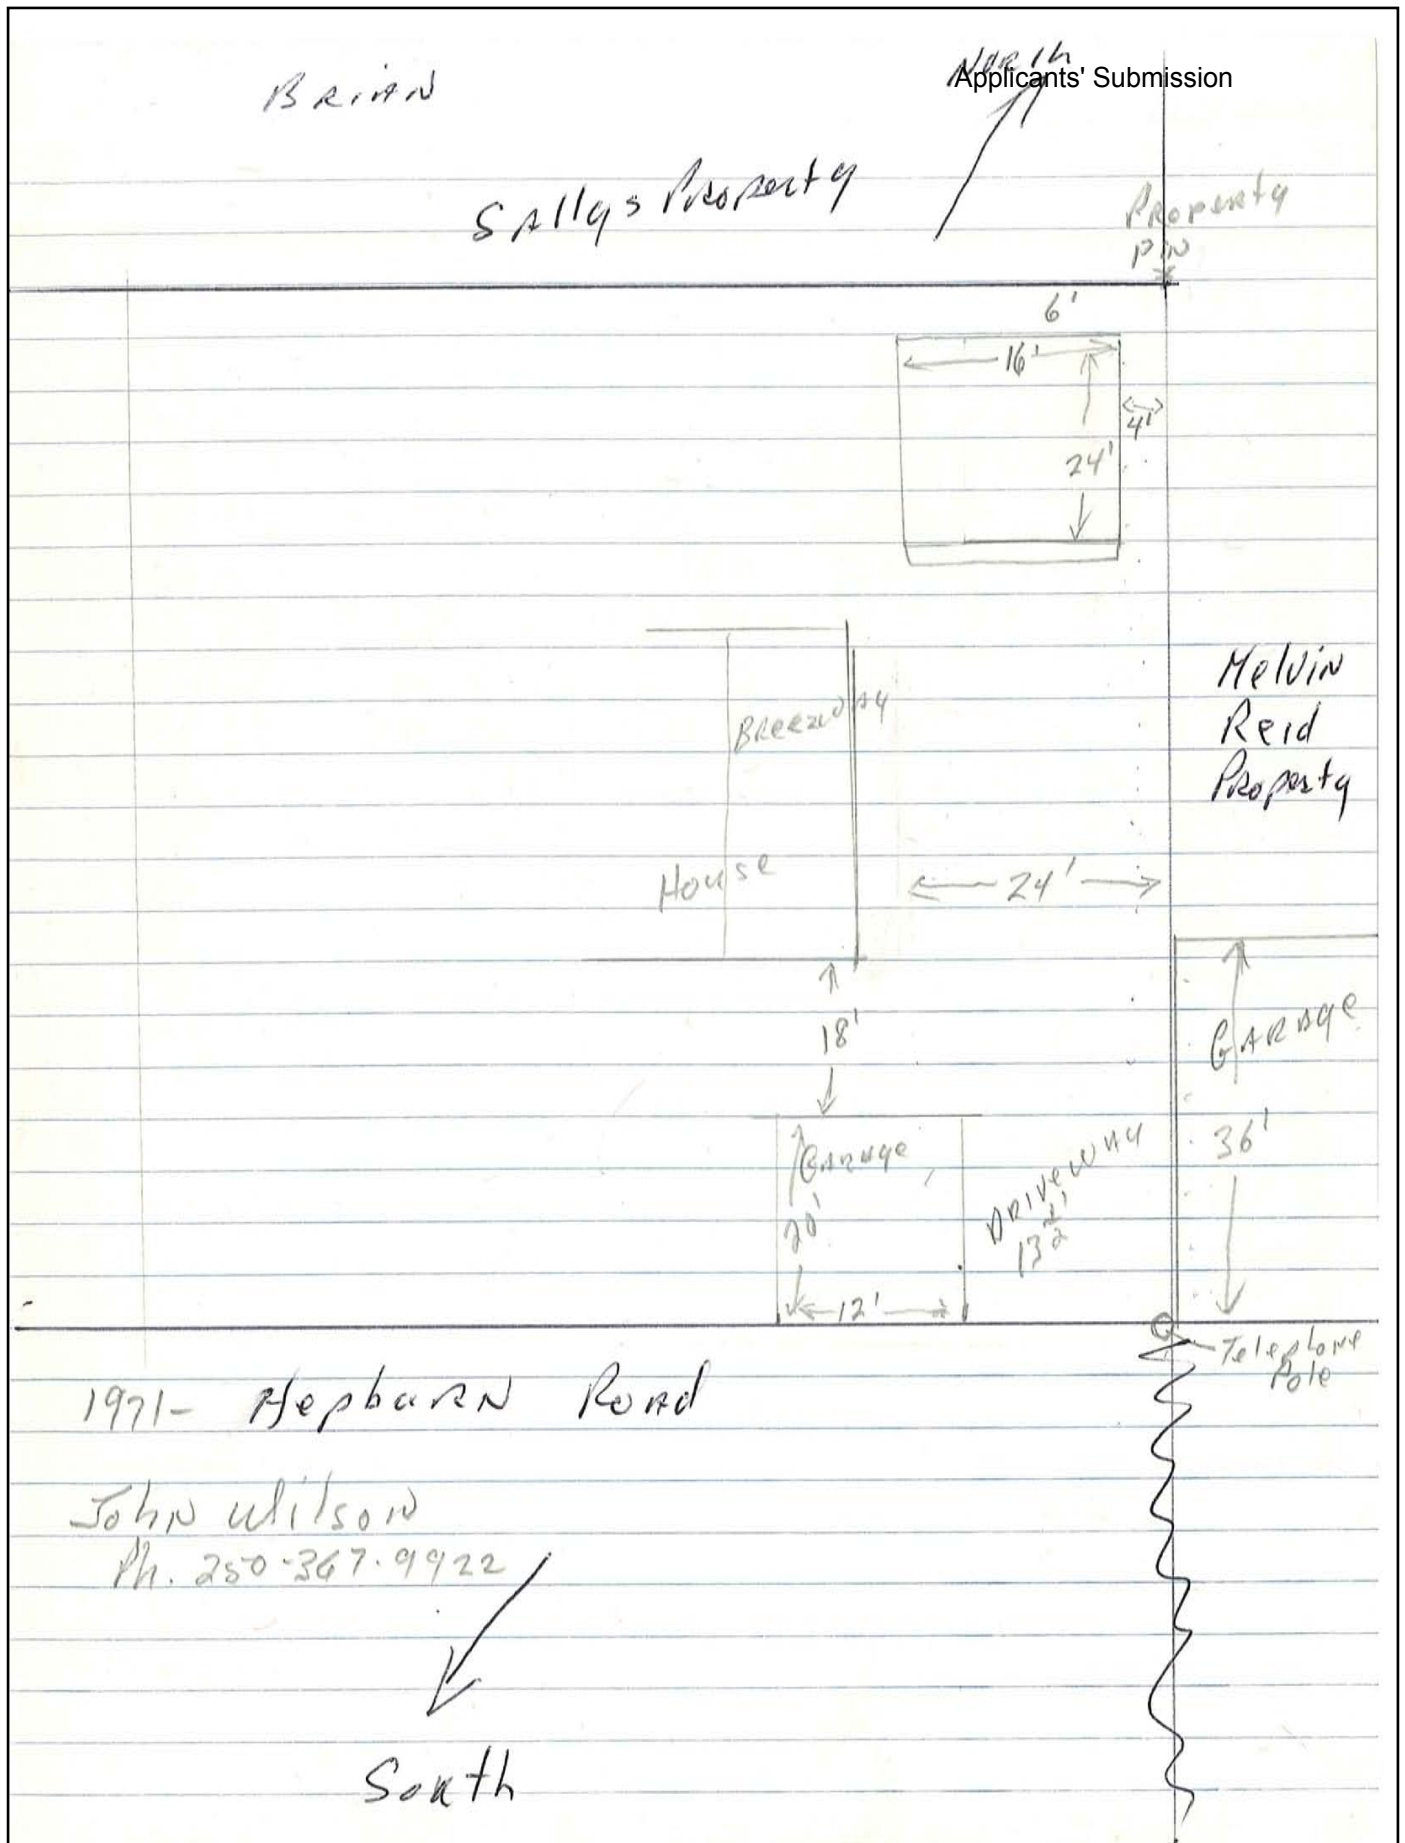 North
Applicants' Submission
BRIAN
SAllys Property
Property
PIN
6'
16'
4'
24'
Melvin
Reid
Property
BReezwAy
House
24'
18'
GARAge
36'
GARAge
20'
DRIVeWAY
13 1/2'
12'
Telephone
Pole
1971- HepbuRN Road
John Wilson
Ph. 250-367-9922
South